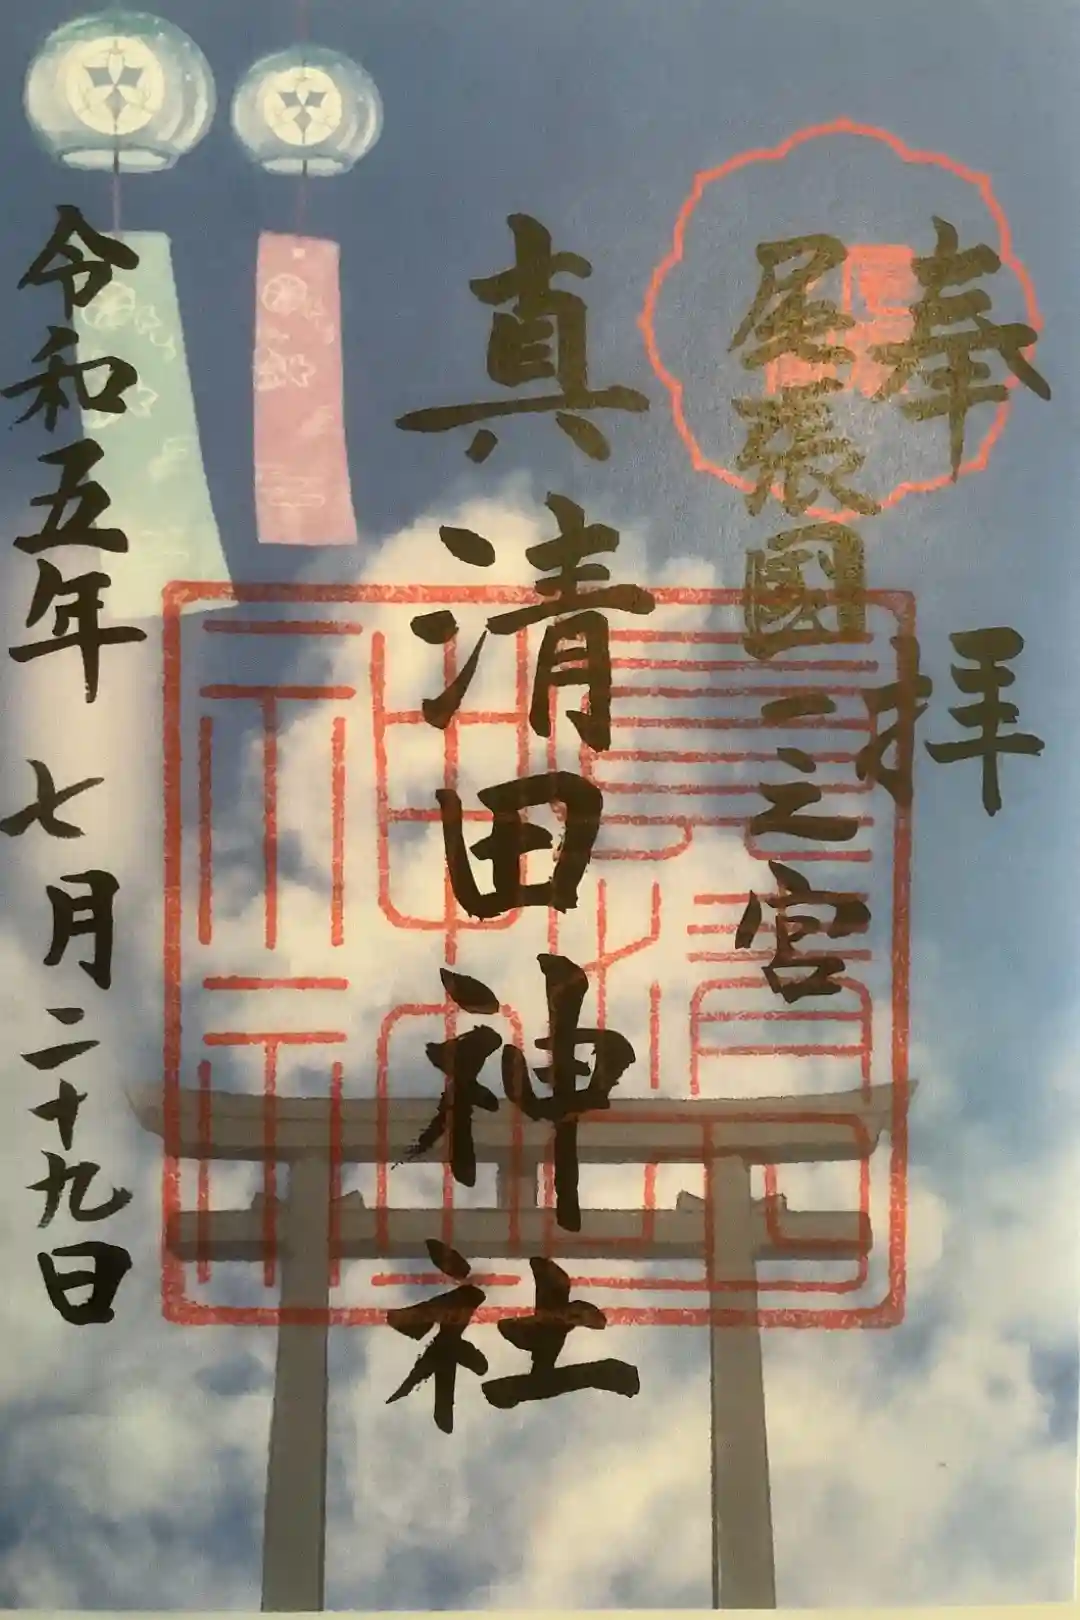 奉拝
尾張國一之宮
真清田神社
令和五年七月二十九日